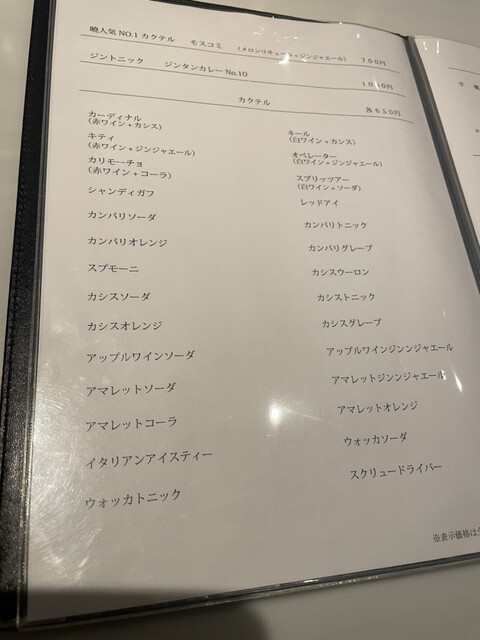 暁人気NO.1カクテル　モスコミ　（メロンリキュール＋ジンジャエール）　700円
ジントニック　ジンタンカレーNo.10　1010円
カクテル　各650円
カーディナル
（赤ワイン＋カシス）
キール
（白ワイン＋カシス）
キティ
（赤ワイン＋ジンジャエール）
オペレーター
（白ワイン＋ジンジャエール）
カリモーチョ
（赤ワイン＋コーラ）
スプリッツアー
（白ワイン＋ソーダ）
シャンディガフ
レッドアイ
カンパリソーダ
カンパリトニック
カンパリオレンジ
カンパリグレープ
スプモーニ
カシスウーロン
カシスソーダ
カシストニック
カシスオレンジ
カシスグレープ
アップルワインソーダ
アップルワインジンンジャエール
アマレットソーダ
アマレットジンンジャエール
アマレットコーラ
アマレットオレンジ
イタリアンアイスティー
ウォッカソーダ
ウォッカトニック
スクリュードライバー
※表示価格は